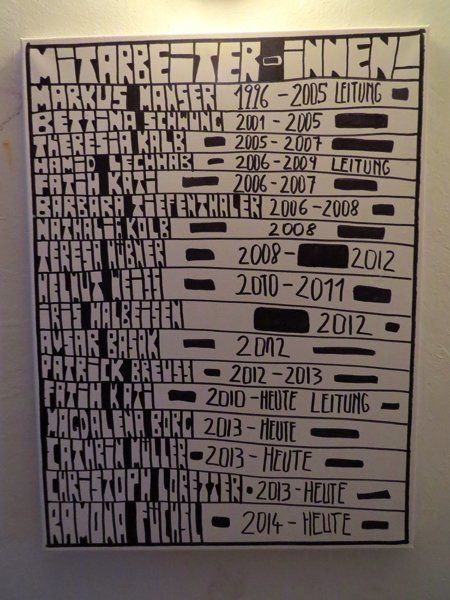 MITARBEITER-INNEN!
MARKUS MANSER 1996-2005 LEITUNG
BETTINA SCHWUNG 2001-2005
THERESIA KALB 2005-2007
HAMID LECHHAB 2006-2009 LEITUNG
FATIH KATI 2006-2007
BARBARA TIEFENTHALER 2006-2008
NATHALIE KOLB 2008
TERESA HÜBNER 2008-2012
HELMUT WEISS 2010-2011
IRIS HALBEISEN 2012
AVSAR BASAK 2012
PATRICK BREUSS 2012-2013
FATIH KATI 2010-HEUTE LEITUNG
MAGDALENA BORG 2013-HEUTE
CATHRIN MÜLLER 2013-HEUTE
CHRISTOPH LORETTER 2013-HEUTE
RAMONA 2014-HEUTE